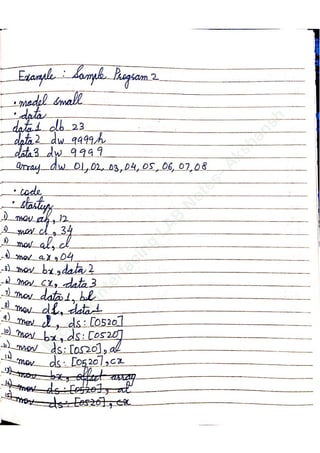 Example : Sample Program 2
.model small
.data
data1 db 23
data2 dw 9999h
data3 dw 9999
array dw 01,02,03,04,05,06,07,08
.code
.startup
1) mov ah, 12
2) mov cl, 34
3) mov al, cl
4) mov ax, 04
5) mov bx, data2
6) mov cx, data3
7) mov data1, bl
8) mov dl, data1
9) mov cl, ds:[0520]
10) mov bx, ds:[0520]
11) mov ds:[0520], al
12) mov ds:[0520], cx
13) mov bx, offset array
14) mov ds:[0520], al
15) mov ds:[0520], cx